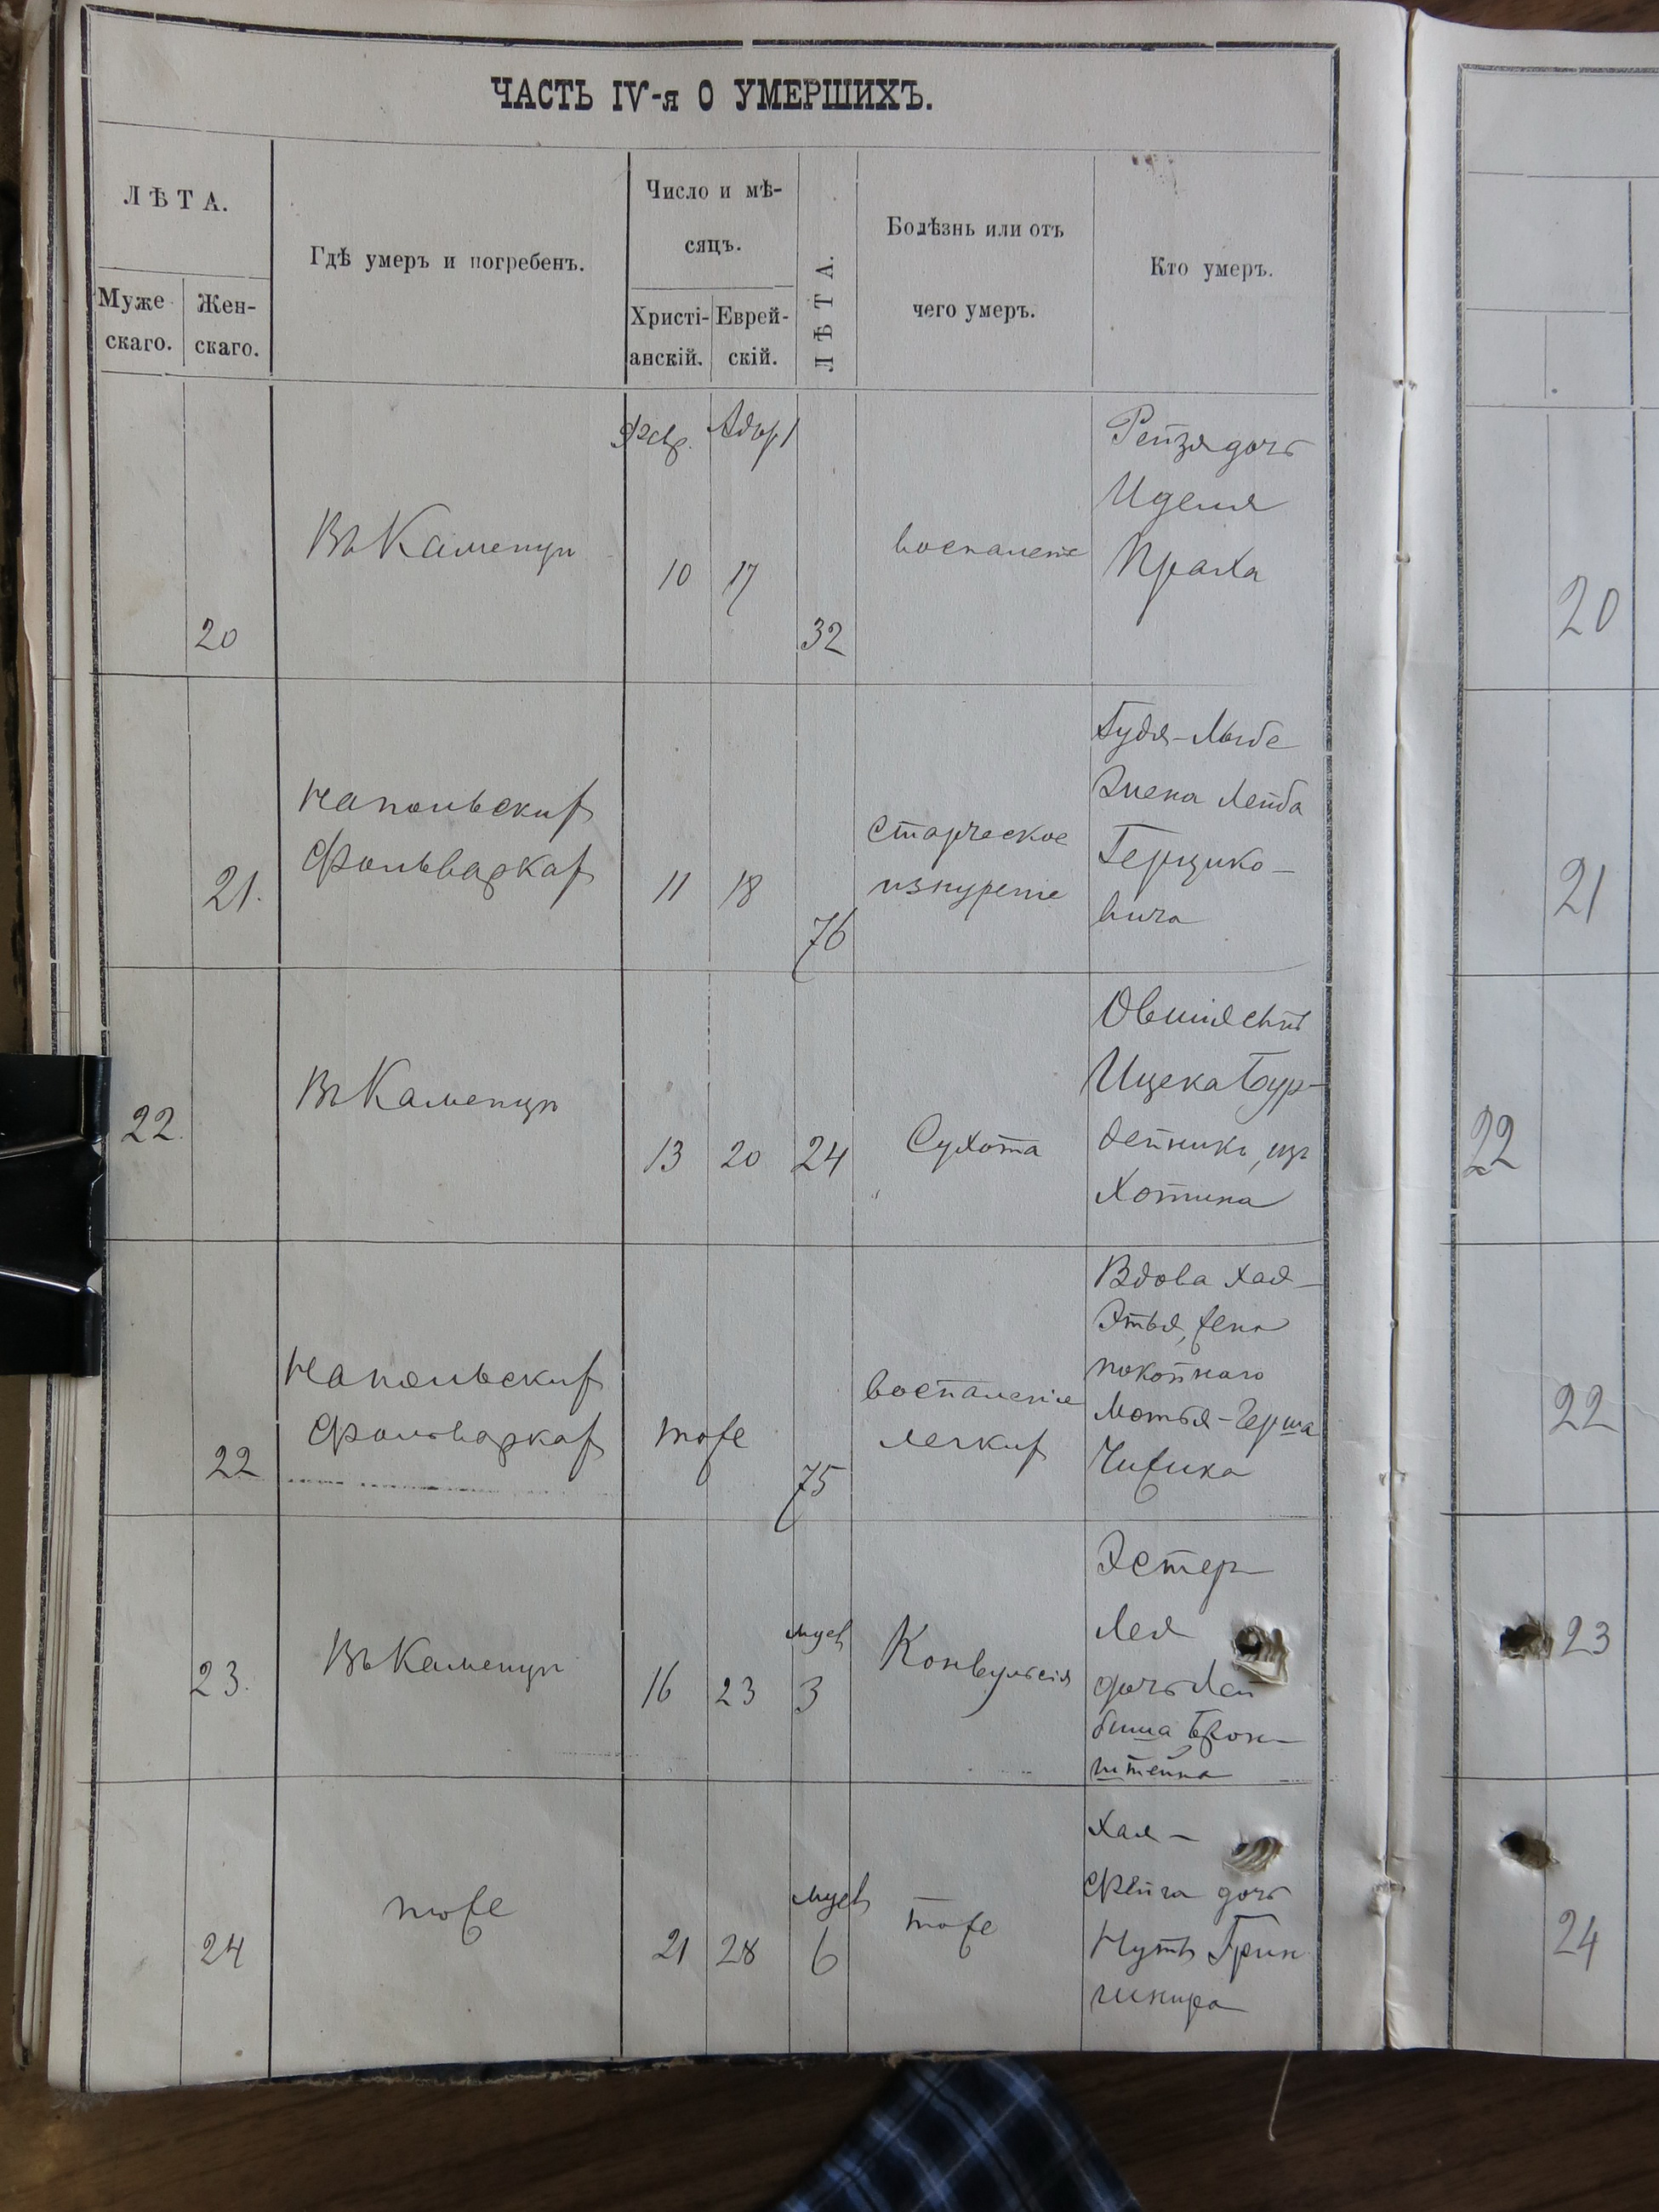 ЧАСТЬ IV-я О УМЕРШИХЪ.
ЛѢТА.
Муже-
скаго.
Жен-
скаго.
Гдѣ умеръ и погребенъ.
Число и мѣ-
сяцъ.
Христі-
анскій.
Еврей-
скій.
ЛѢТА.
Болѣзнь или отъ
чего умеръ.
Кто умеръ.
Февр.
Адар 1
20
Въ Каменцѣ
10
17
32
воспаленіе
Рейзя дочь
Иделя
Праха
20
21.
Напольскихъ
Фольваркахъ
11
18
76
Старческое
изнуреніе
Лейба
Герцико-
вича
21
22.
Въ Каменцѣ
13
20
24
Сухота
Овшія сынъ
Ицека Бур-
дейника, изъ
Хотина
22
22
Напольскихъ
Фольваркахъ
тоже
75
воспаленіе
легкихъ
Вдова Хая-
Этья, жена
покойнаго
Мотья-Герша
Чижика
22
23.
Въ Каменцѣ
16
23
мцев
3
Конвульсія
Эстер
Лея
дочь Лей
биша Брон-
штейна
23
24
тоже
21
28
мцев
6
тоже
Хая-
Фейга дочь
Нутъ Грин
24